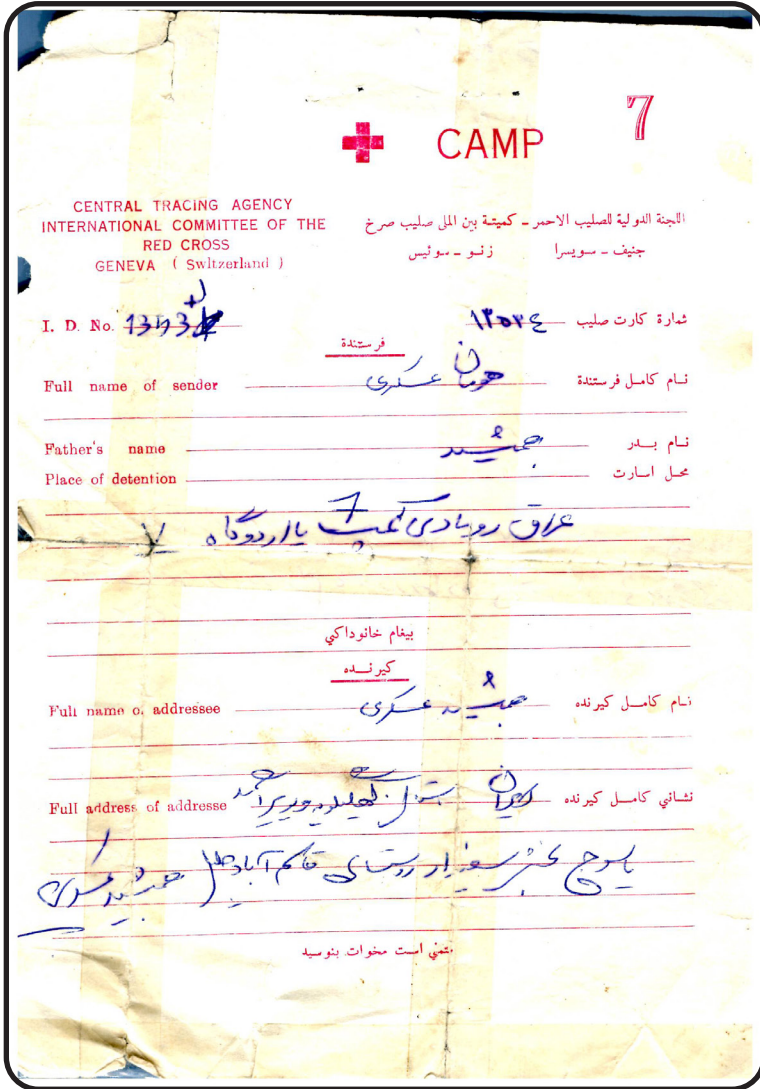 7
CAMP
CENTRAL TRACING AGENCY
INTERNATIONAL COMMITTEE OF THE
RED CROSS
GENEVA ( Switzerland )
اللجنة الدولية للصليب الاحمر ـ كميتة بين الملى صليب صرخ
جنيف ـ سويسرا زنـو ـ سوئيس
I. D. No. شمارة كارت صليب ١٣٥٣٤
فرستندة
Full name of sender هومان عسکری نـام كامـل فرستندة
Father's name جمشید نـام بـدر
Place of detention محـل اسـارت
عراق رومادی کمپ 7 یا اردوگاه ٧
بيغام خانوداكي
كيرنـده
Full name o. addressee جمشید عسکری نـام كامـل كيرنده
Full address of addresse ایران کهکیلویه و بویراحمد نشاني كامـل كيرنده
یاسوج بخش روستای قاسم آباد جمشید عسکری
متمني است مخوات بنوسيد